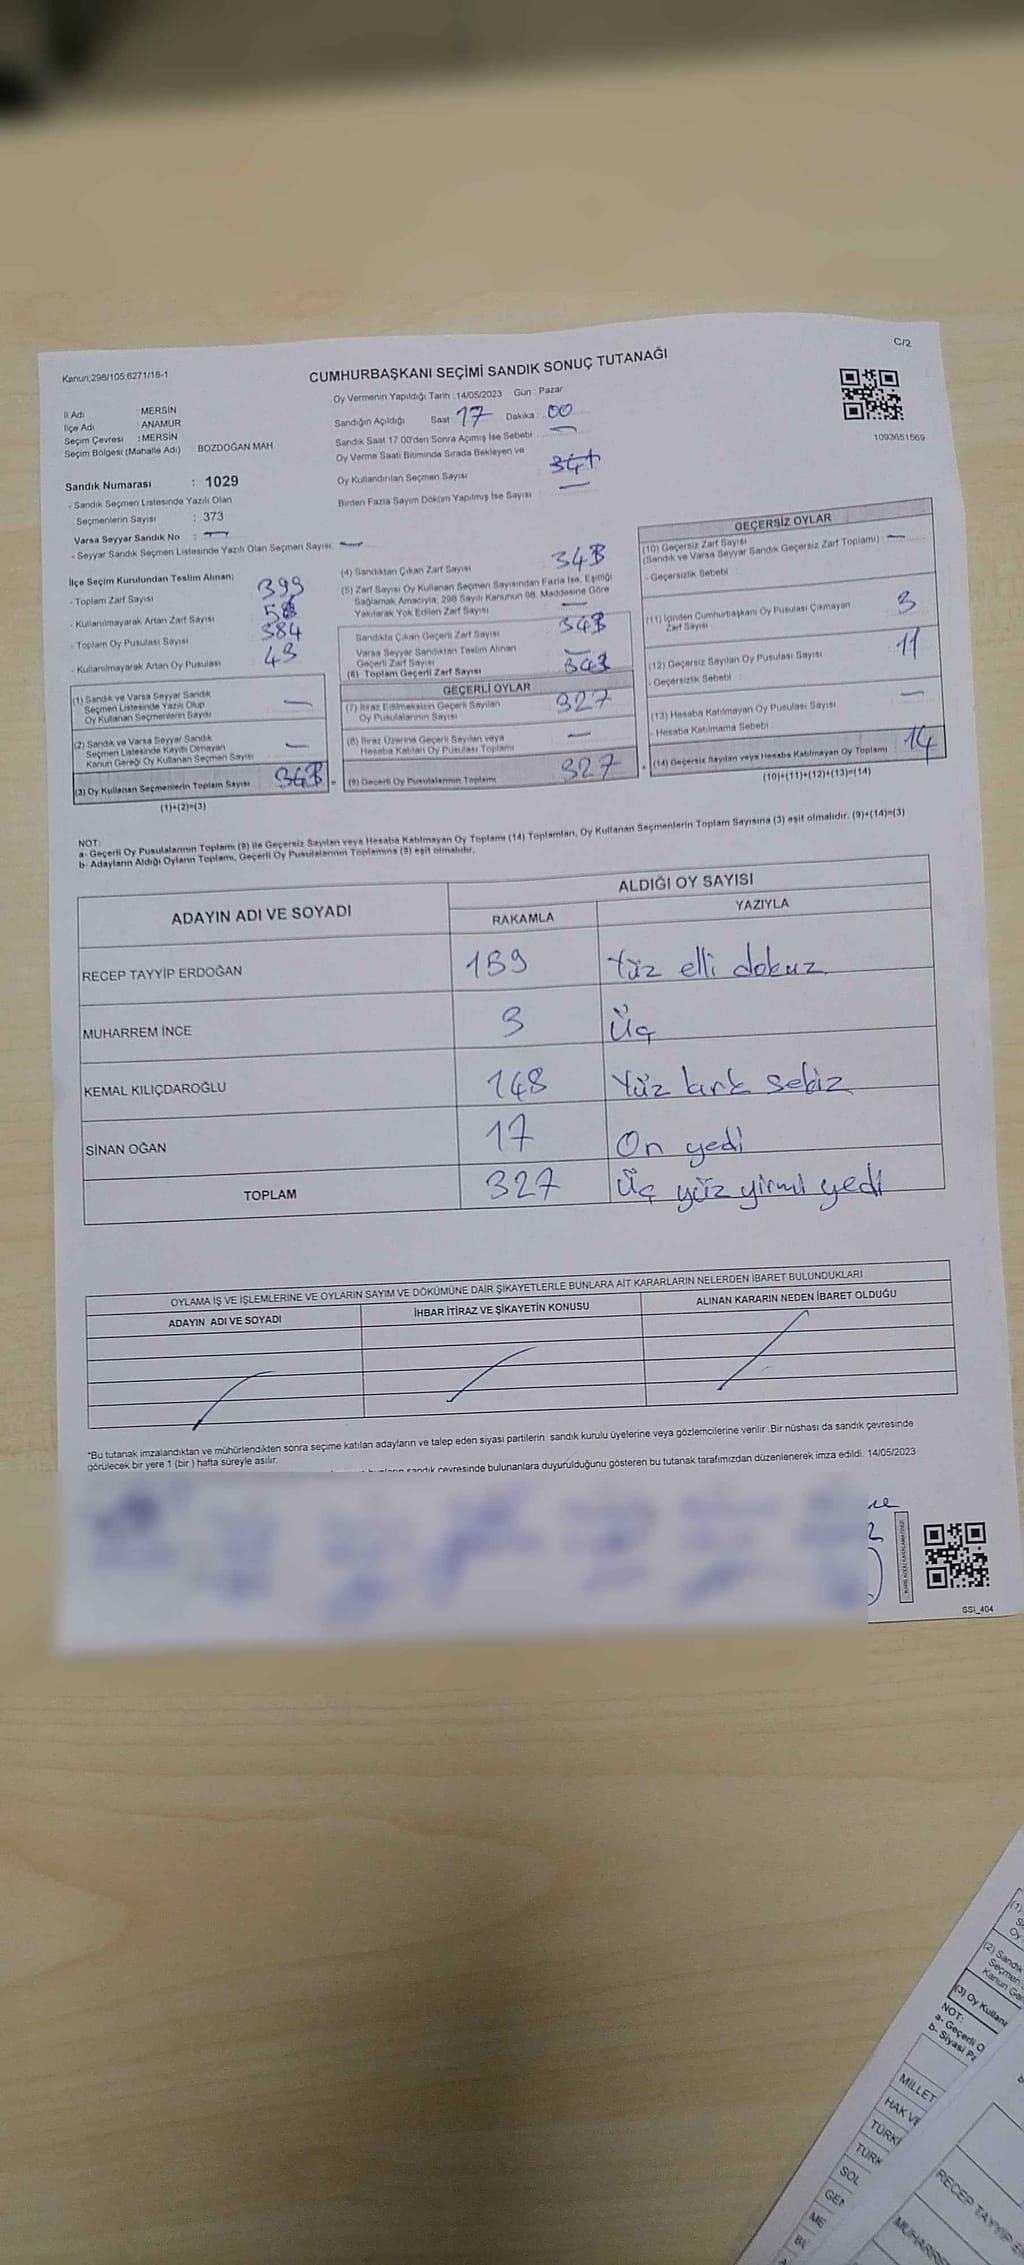 C/2
Kanun;298/105;6271/18-1
CUMHURBAŞKANI SEÇİMİ SANDIK SONUÇ TUTANAĞI
Oy Vermenin Yapıldığı Tarih : 14/05/2023 Gün : Pazar
İl Adı : MERSİN
İlçe Adı : ANAMUR
Seçim Çevresi : MERSİN
Seçim Bölgesi (Mahalle Adı) : BOZDOĞAN MAH
Sandığın Açıldığı Saat 17 Dakika : 00
Sandık Saat 17:00'den Sonra Açılmış İse Sebebi : —
Oy Verme Saati Bitiminde Sırada Bekleyen ve
Oy Kullandırılan Seçmen Sayısı
Birden Fazla Sayım Döküm Yapılmış İse Sayısı —
1093651569
Sandık Numarası : 1029
- Sandık Seçmen Listesinde Yazılı Olan
Seçmenlerin Sayısı : 373
Varsa Seyyar Sandık No : —
- Seyyar Sandık Seçmen Listesinde Yazılı Olan Seçmen Sayısı : —
İlçe Seçim Kurulundan Teslim Alınan;
- Toplam Zarf Sayısı 399
- Kullanılmayarak Artan Zarf Sayısı
- Toplam Oy Pusulası Sayısı 384
- Kullanılmayarak Artan Oy Pusulası 43
(1) Sandık ve Varsa Seyyar Sandık
Seçmen Listesinde Yazılı Olup
Oy Kullanan Seçmenlerin Sayısı —
(2) Sandık ve Varsa Seyyar Sandık
Seçmen Listesinde Kayıtlı Olmayan
Kanun Gereği Oy Kullanan Seçmen Sayısı —
(3) Oy Kullanan Seçmenlerin Toplam Sayısı =
(1)+(2)=(3)
(4) Sandıktan Çıkan Zarf Sayısı
(5) Zarf Sayısı Oy Kullanan Seçmen Sayısından Fazla İse, Eşitliği
Sağlamak Amacıyla; 298 Sayılı Kanunun 98. Maddesine Göre
Yakılarak Yok Edilen Zarf Sayısı —
Sandıkta Çıkan Geçerli Zarf Sayısı
Varsa Seyyar Sandıktan Teslim Alınan
Geçerli Zarf Sayısı —
(6) Toplam Geçerli Zarf Sayısı 343
GEÇERLİ OYLAR
(7) İtiraz Edilmeksizin Geçerli Sayılan
Oy Pusulalarının Sayısı 327
(8) İtiraz Üzerine Geçerli Sayılan veya
Hesaba Katılan Oy Pusulası Toplamı —
(9) Geçerli Oy Pusulalarının Toplamı 327 +
GEÇERSİZ OYLAR
(10) Geçersiz Zarf Sayısı
(Sandık ve Varsa Seyyar Sandık Geçersiz Zarf Toplamı) : —
- Geçersizlik Sebebi :
(11) İçinden Cumhurbaşkanı Oy Pusulası Çıkmayan
Zarf Sayısı 3
(12) Geçersiz Sayılan Oy Pusulası Sayısı 11
- Geçersizlik Sebebi :
(13) Hesaba Katılmayan Oy Pusulası Sayısı —
- Hesaba Katılmama Sebebi :
(14) Geçersiz Sayılan veya Hesaba Katılmayan Oy Toplamı 14
(10)+(11)+(12)+(13)=(14)
NOT:
a- Geçerli Oy Pusulalarının Toplamı (9) ile Geçersiz Sayılan veya Hesaba Katılmayan Oy Toplamı (14) Toplamları, Oy Kullanan Seçmenlerin Toplam Sayısına (3) eşit olmalıdır. (9)+(14)=(3)
b- Adayların Aldığı Oyların Toplamı, Geçerli Oy Pusulalarının Toplamına (9) eşit olmalıdır.
ADAYIN ADI VE SOYADI
ALDIĞI OY SAYISI
RAKAMLA YAZIYLA
RECEP TAYYİP ERDOĞAN 159 Yüz elli dokuz
MUHARREM İNCE 3 Üç
KEMAL KILIÇDAROĞLU 148 Yüz kırk sekiz
SİNAN OĞAN 17 On yedi
TOPLAM 327 Üç yüz yirmi yedi
OYLAMA İŞ VE İŞLEMLERİNE VE OYLARIN SAYIM VE DÖKÜMÜNE DAİR ŞİKAYETLERLE BUNLARA AİT KARARLARIN NELERDEN İBARET BULUNDUKLARI
ADAYIN ADI VE SOYADI İHBAR İTİRAZ VE ŞİKAYETİN KONUSU ALINAN KARARIN NEDEN İBARET OLDUĞU
*Bu tutanak imzalandıktan ve mühürlendikten sonra seçime katılan adayların ve talep eden siyasi partilerin sandık kurulu üyelerine veya gözlemcilerine verilir. Bir nüshası da sandık çevresinde
görülecek bir yere 1 (bir) hafta süreyle asılır.
sandık çevresinde bulunanlara duyurulduğunu gösteren bu tutanak tarafımızdan düzenlenerek imza edildi. 14/05/2023
SSI_404
(1)
(2) Sandık
Seçmen
(3) Oy Kullana
NOT:
a- Geçerli O
b- Siyasi Pa
MİLLET
HAK VE
TÜRKİ
TÜRK
SOL
RECEP TAYYİP E